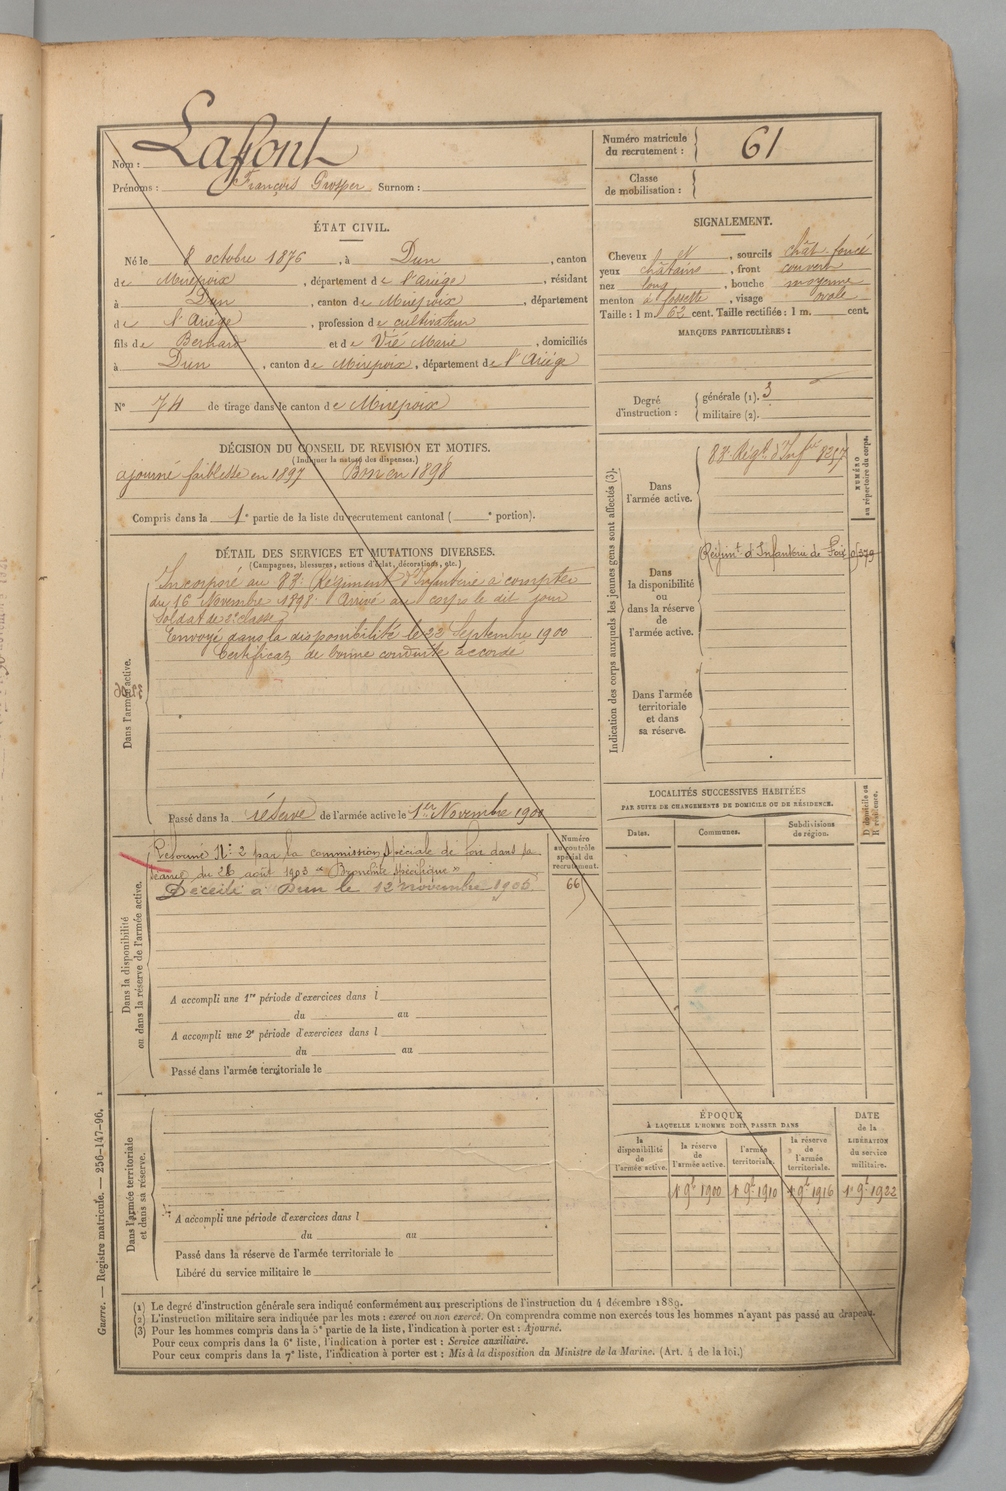 Nom : Laffont
Prénoms : François Prosper Surnom :
Numéro matricule du recrutement : 61
Classe de mobilisation :
ÉTAT CIVIL.
Né le 8 octobre 1876, à Dun, canton
de Mirepoix, département de l'Ariége, résidant
à Dun, canton de Mirepoix, département
de l'Ariége, profession de cultivateur
fils de Bernard et de Vié Marie, domiciliés
à Dun, canton de Mirepoix, département de l'Ariége
N° 74 de tirage dans le canton de Mirepoix
SIGNALEMENT.
Cheveux et, sourcils chât. foncé
yeux châtains, front couvert
nez long, bouche moyenne
menton à fossette, visage ovale
Taille : 1 m. 62 cent. Taille rectifiée : 1 m. cent.
MARQUES PARTICULIÈRES :
Degré d'instruction : générale (1). 3
militaire (2).
DÉCISION DU CONSEIL DE REVISION ET MOTIFS.
(Indiquer la nature des dispenses.)
ajourné faiblesse en 1897 Bon en 1898
Compris dans la 1e partie de la liste du recrutement cantonal ( e portion).
DÉTAIL DES SERVICES ET MUTATIONS DIVERSES.
(Campagnes, blessures, actions d'éclat, décorations, etc.)
Dans l'armée active.
Incorporé au 83e Régiment d'Infanterie à compter
du 16 Novembre 1898. Arrivé au corps le dit jour
Soldat de 2e classe
Envoyé dans la disponibilité le 22 Septembre 1900
Certificat de bonne conduite accordé
Passé dans la réserve de l'armée active le 1er Novembre 1900
Indication des corps auxquels les jeunes gens sont affectés (3).
NUMÉRO au répertoire du corps.
Dans l'armée active.
83e Régt d'Infrie 8257
Dans la disponibilité ou dans la réserve de l'armée active.
Régimt d'Infanterie de Foix 0/579
Dans l'armée territoriale et dans sa réserve.
LOCALITÉS SUCCESSIVES HABITÉES
PAR SUITE DE CHANGEMENTS DE DOMICILE OU DE RÉSIDENCE.
D domicile ou R résidence.
Dates. Communes. Subdivisions de région.
Dans la disponibilité ou dans la réserve de l'armée active.
Numéro au contrôle spécial du recrutement.
66
Réformé N° 2 par la commission spéciale de Foix dans sa
séance du 26 août 1903 « Bronchite spécifique »
Décédé à Dun le 12 novembre 1905.
A accompli une 1re période d'exercices dans l
du au
A accompli une 2e période d'exercices dans l
du au
Passé dans l'armée territoriale le
Dans l'armée territoriale et dans sa réserve.
A accompli une période d'exercices dans l
du au
Passé dans la réserve de l'armée territoriale le
Libéré du service militaire le
ÉPOQUE
À LAQUELLE L'HOMME DOIT PASSER DANS
la disponibilité de l'armée active.
la réserve de l'armée active.
l'armée territoriale.
la réserve de l'armée territoriale.
DATE de la LIBÉRATION du service militaire.
1er 9bre 1900 1er 9bre 1910 1er 9bre 1916 1er 9bre 1922
Guerre. — Registre matricule. — 256-147-96. 1
(1) Le degré d'instruction générale sera indiqué conformément aux prescriptions de l'instruction du 4 décembre 1889.
(2) L'instruction militaire sera indiquée par les mots : exercé ou non exercé. On comprendra comme non exercés tous les hommes n'ayant pas passé au drapeau.
(3) Pour les hommes compris dans la 5e partie de la liste, l'indication à porter est : Ajourné.
Pour ceux compris dans la 6e liste, l'indication à porter est : Service auxiliaire.
Pour ceux compris dans la 7e liste, l'indication à porter est : Mis à la disposition du Ministre de la Marine. (Art. 4 de la loi.)